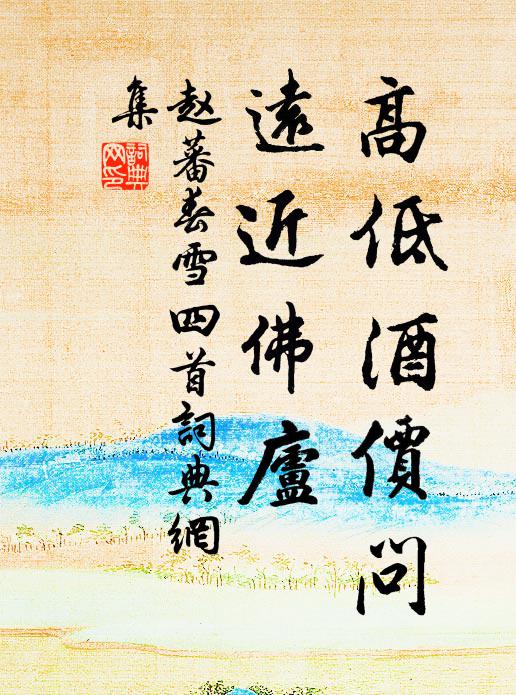 高低酒價問
遠近佛廬
赵蕃春雪四首詞典網
集
詞典
网印